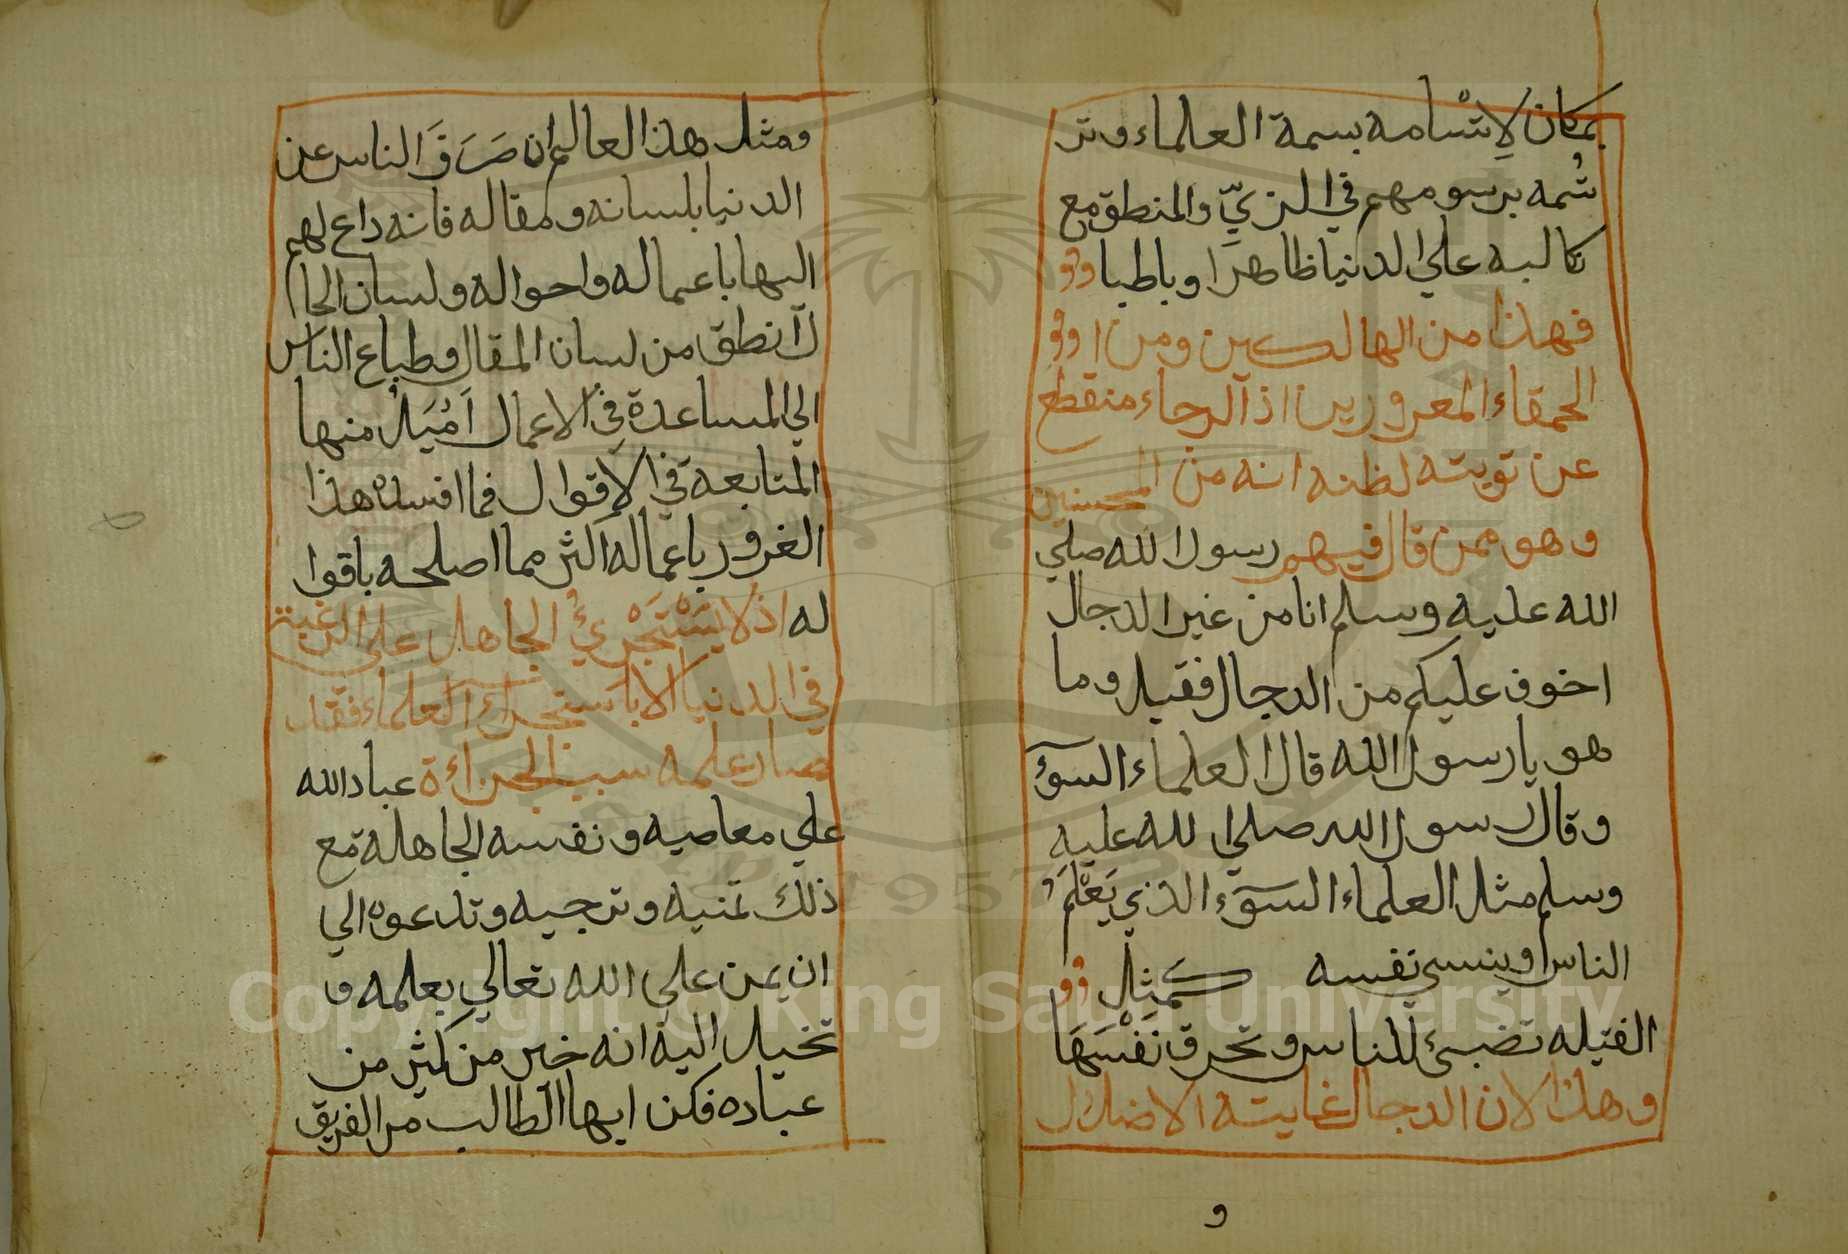 بمكان لاتسامه بسمة العلماء وتر
سُمه برسومهم في الزيّ والمنطق مع
تكالبه علي الدنيا ظاهرا وباطنا
فهذا من الهالكين ومن ا
الحمقاء المغرورين اذ الرجاء منقطع
عن توبته لظنه انه من المحسنين
وهو ممن قال فيهم رسول الله صلي
الله عليه وسلم انا من غير الدجال
اخوف عليكم من الدجال فقيل وما
هو يا رسول الله قال العلماء السوء
وقال رسول الله صلي الله عليه
وسلم مثل العلماء السوء الذي يَعْلَم
الناس وينسي نفسه كمثل
الفتيله تضيئ للناس وتحرق نَفْسَهَا
وهذا لان الدجال غايته الاضلال
و
ومثل هذا العالم ان صَرَفَ الناس عن
الدنيا بلسانه ومقاله فانه داع لهم
اليها باعماله واحواله ولسان الحا
ل انطق من لسان المقال وطباع الناس
الي المساعدة في الاعمال اَمْيَلُ منها
المتابعة في الاقوال فما افسده هذا
الغرور باعماله اكثر مما اصلحه باقوا
له اذ لا يَسْتَجْرِئُ الجاهل علي الرغبة
في الدنيا الا باستجراء العلماء فقد
صار علمه سبب الجراءة عباد الله
علي معاصيه ونفسه الجاهلة مع
ذلك تمنيه وترجيه وتدعوه الي
ان يمن علي الله تعالي بعلمه و
تخيل اليه انه خير من كثير من
عباده فكن ايها الطالب من الفريق
Copyright © King Saud University
1957